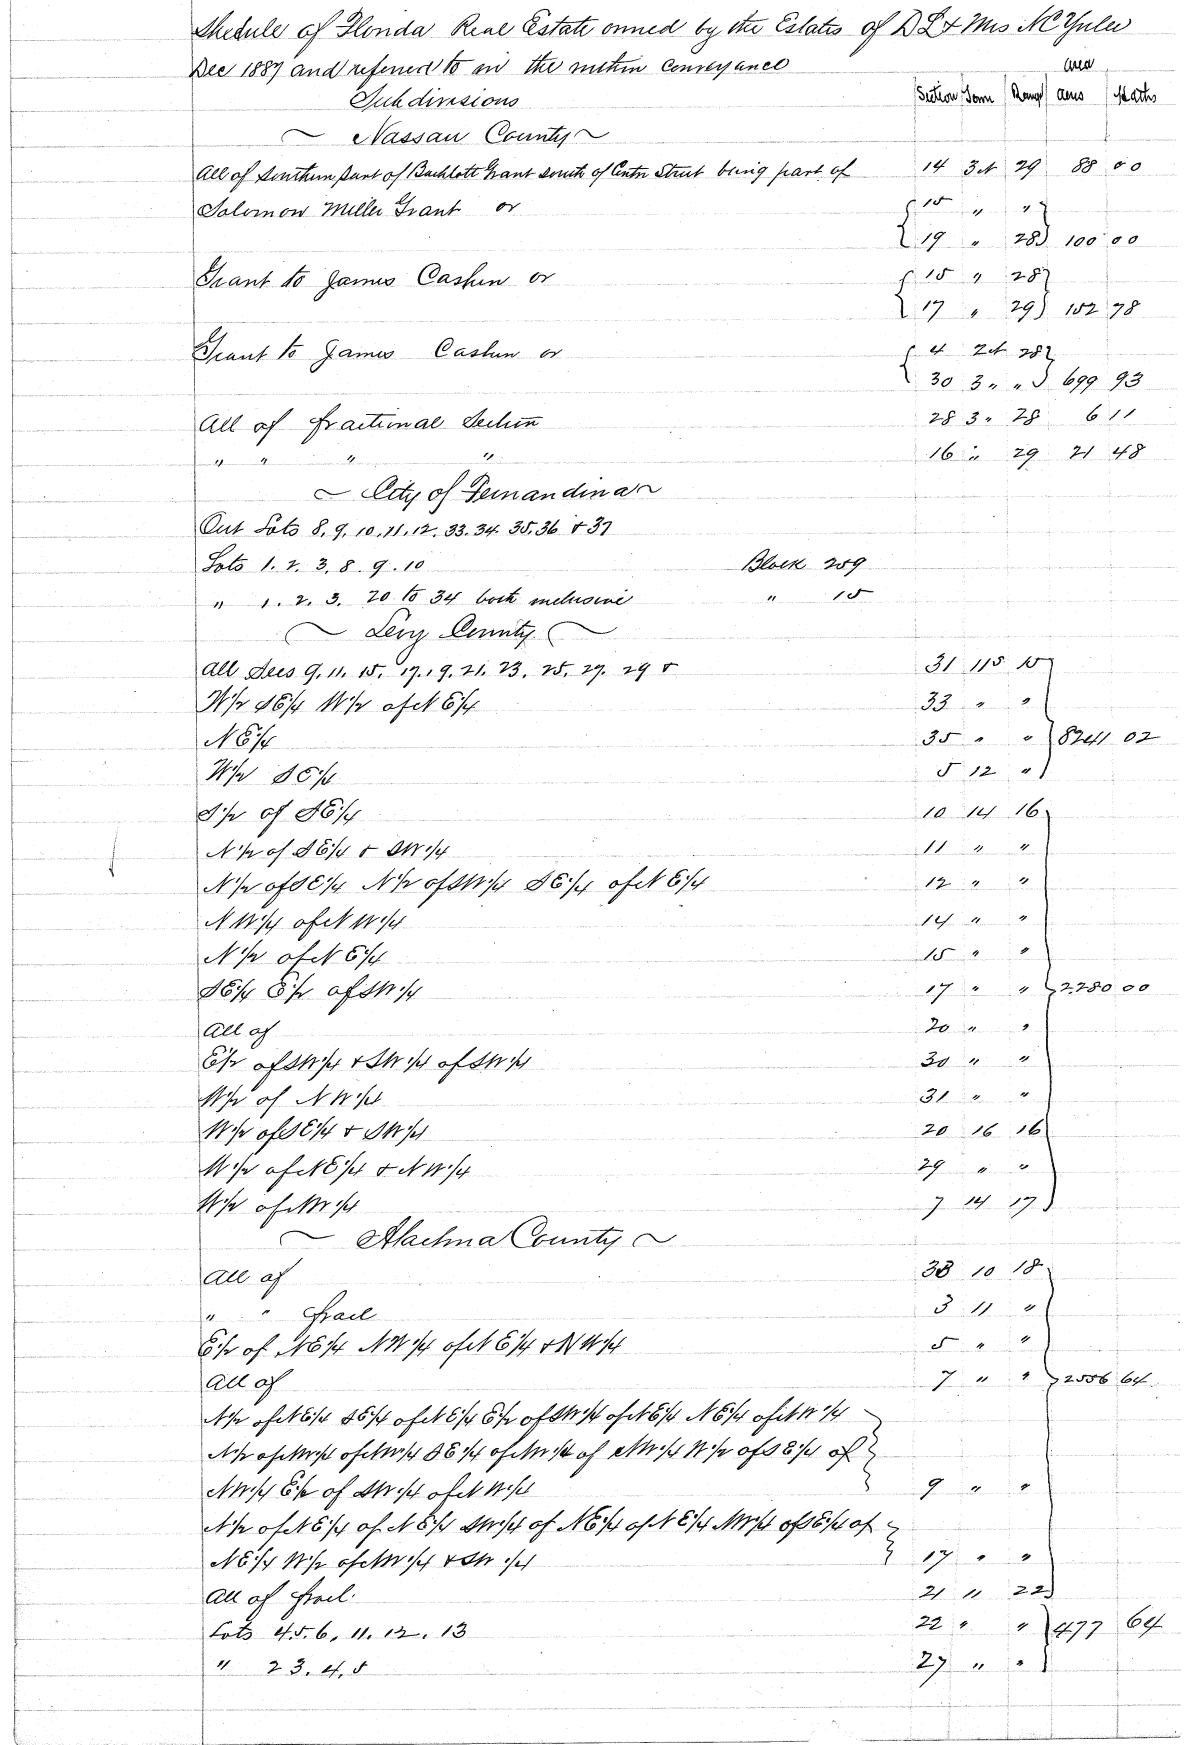 Shedule of Florida Real Estate owned by the Estates of D L & Mrs N C Yulee
Dec 1887 and referred to in the within Conveyance
Area
Subdivisions Section Town Range acres
Nassau County
All of Southern part of Backlott Grant south of Centre Street being part of 14 3N 29 88 00
Solomon Miller Grant or 15 " "
19 " 28 100 00
Grant to James Cashen or 15 " 28
17 " 29 152 78
Grant to James Cashen or 4 2N 28
30 3 " " 699 93
All of fractional Section 28 3 " 28 6 11
" " " " 16 " 29 21 48
City of Fernandina
Out Lots 8, 9, 10, 11, 12, 33, 34, 35, 36 & 37
Lots 1. 2. 3, 8. 9. 10 Block 259
" 1. 2. 3. 20 to 34 both inclusive " 15
Levy County
All Secs 9, 11. 15, 17, 19, 21, 23, 25, 27, 29 & 31 11S 15
W 1/2 SE 1/4 W 1/2 of NE 1/4 33 " "
NE 1/4 35 " " 8241 02
W 1/2 SE 1/4 5 12 "
S 1/2 of SE 1/4 10 14 16
N 1/2 of SE 1/4 & SW 1/4 11 " "
N 1/2 of SE 1/4 N 1/2 of SW 1/4 SE 1/4 of NE 1/4 12 " "
NW 1/4 of NW 1/4 14 " "
N 1/2 of NE 1/4 15 " "
SE 1/4 E 1/2 of SW 1/4 17 " " 2280 00
All of 20 " "
E 1/2 of SW 1/4 & SW 1/4 of SW 1/4 30 " "
W 1/2 of NW 1/4 31 " "
W 1/2 of SE 1/4 & SW 1/4 20 16 16
W 1/2 of NE 1/4 & NW 1/4 29 " "
W 1/2 of NW 1/4 7 14 17
Alachua County
All of 33 10 18
" " fracl 3 11 "
E 1/2 of NE 1/4 NW 1/4 of NE 1/4 & NW 1/4 5 " "
All of 7 " " 2556 64
N 1/2 of NE 1/4 SE 1/4 of NE 1/4 E 1/2 of SW 1/4 of NE 1/4 NE 1/4 of NW 1/4
N 1/2 of NW 1/4 of NW 1/4 SE 1/4 of NW 1/4 of NW 1/4 W 1/2 of SE 1/4 of
NW 1/4 E 1/2 of SW 1/4 of NW 1/4 9 " "
N 1/2 of NE 1/4 of NE 1/4 SW 1/4 of NE 1/4 of NE 1/4 NW 1/4 of SE 1/4 of
NE 1/4 W 1/2 of NW 1/4 & SW 1/4 17 " "
All of fracl. 21 11 22
Lots 4. 5. 6, 11. 12. 13 22 " " 477 64
" 2 3. 4, 5 27 " "